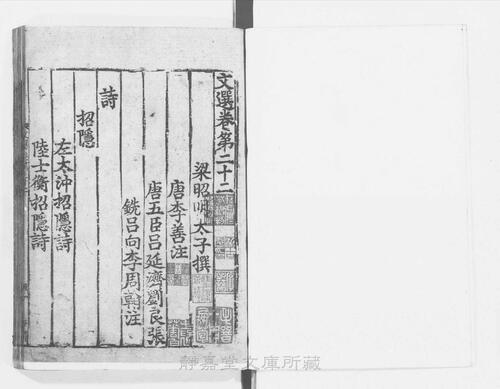 文選卷第二十二
梁昭明太子撰
唐李善注
唐五臣呂延濟劉良張
銑呂向李周翰注
詩
招隱
左太沖招隱詩
陸士衡招隱詩
靜嘉堂文庫所藏